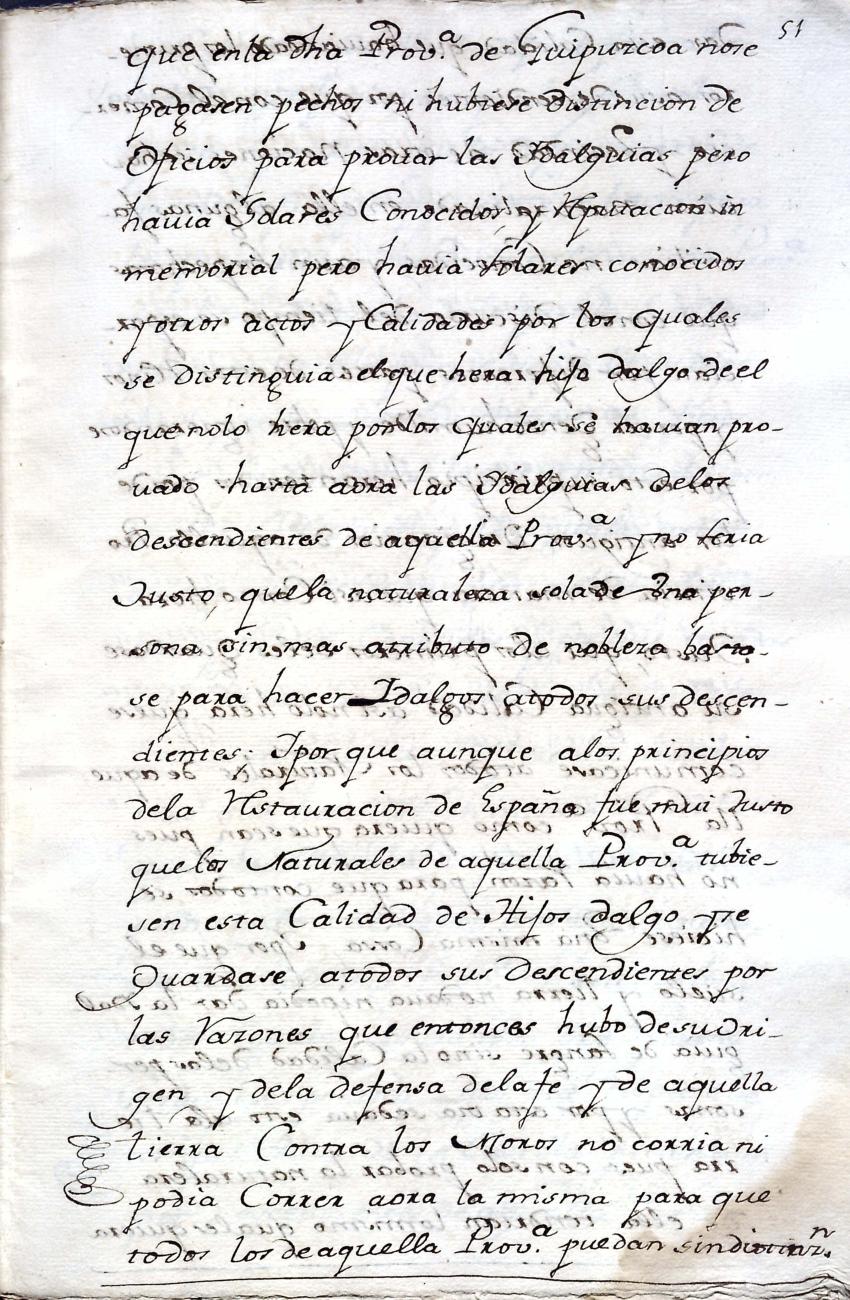 51
que en la dha Prov.ª de Guipuzcoa nose
pagasen pechos ni hubiese distincion de
Oficios para provar las Hidalguias pero
havia Solares Conocidos, y Reputacion in
memorial pero havia solares conocidos
y otros actos y Calidades por los quales
se distinguia el que hera hijo dalgo de el
que nolo hera por los quales se havian pro-
uado hasta aora las Hidalguias delos
descendientes de aquella Prov.ª y no seria
Justo, quela naturaleza sola de una per-
sona sin mas atributo de nobleza basta-
se para hacer Idalgos atodos sus descen-
dientes: Y por que aunque alos principios
dela Restauracion de España fue mui Justo
quelos Naturales de aquella Prov.ª tubie-
sen esta Calidad de Hijos dalgo y se
Guardase, atodos sus Descendientes por
las Razones que entonces hubo de su Ori-
gen y dela defensa dela fe y de aquella
tierra Contra los Moros no corria ni
podia Correr aora la misma para que
todos los de aquella Prov.ª puedan sin distinz.n